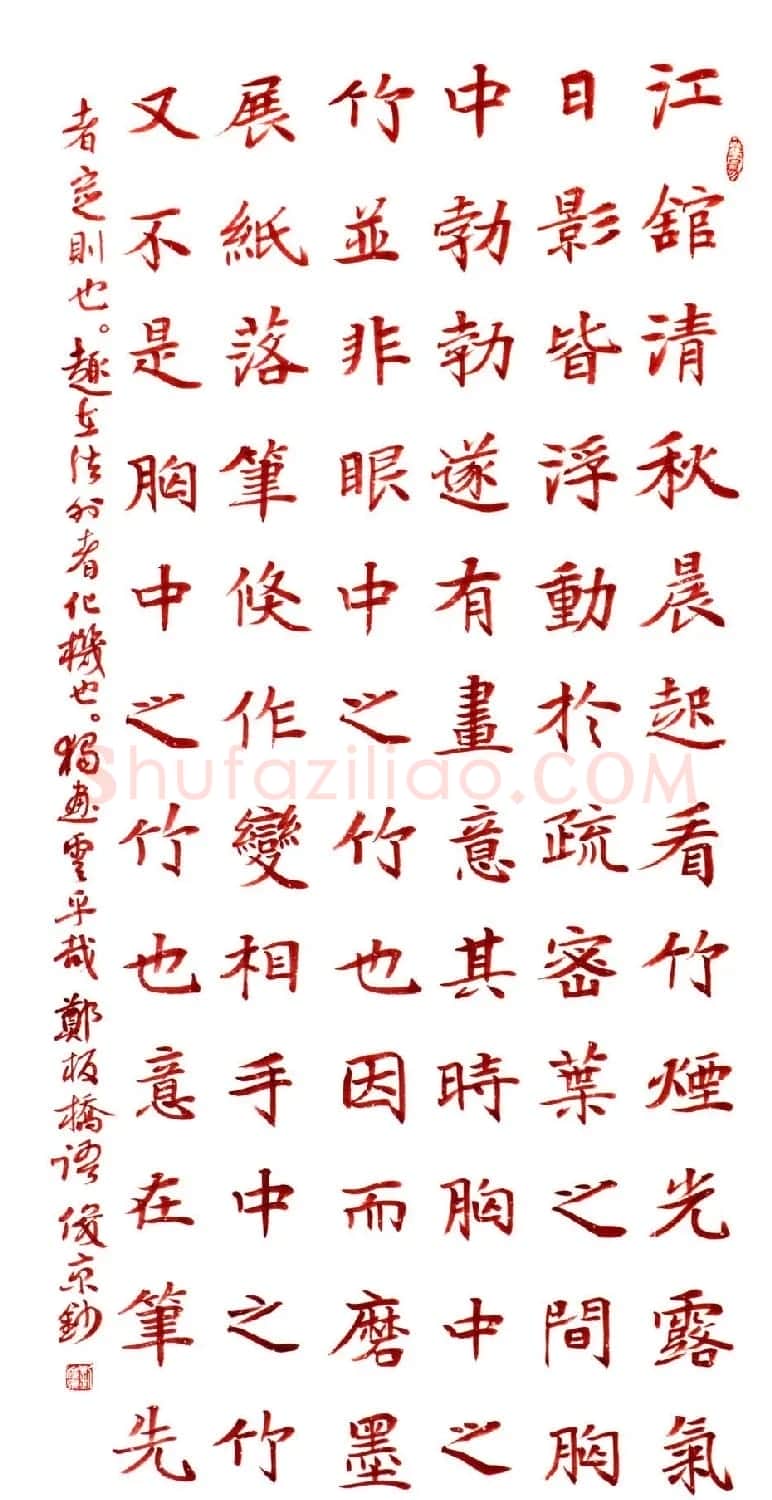 江舘清秋晨起看竹煙光露氣
日影皆浮動於疏密葉之間胸
中勃勃遂有畫意其時胸中之
竹並非眼中之竹也因而磨墨
展紙落筆倏作變相手中之竹
又不是胸中之竹也意在筆先
者定則也。趣在法外者化機也。獨畫雲乎哉 鄭板橋語 俊京鈔
Shufaziliao.COM